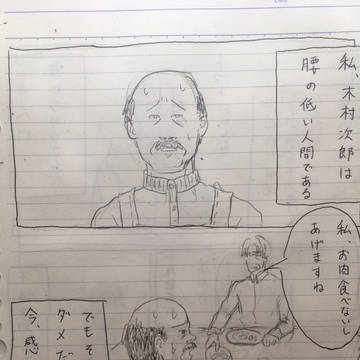 私、木村次郎は
腰の低い人間である
私、お肉食べないし
あげますね
でもそ
ダメだ
今、感